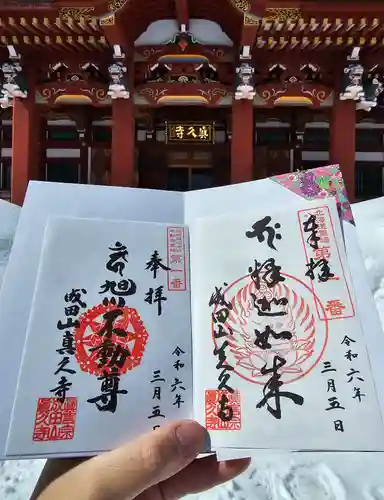 眞久寺
第一番
奉拝
令和六
三月五
旭川不動尊
成田山真久寺
奉拝
第一番
令和六
三月五日
釈迦如来
成田山真久寺